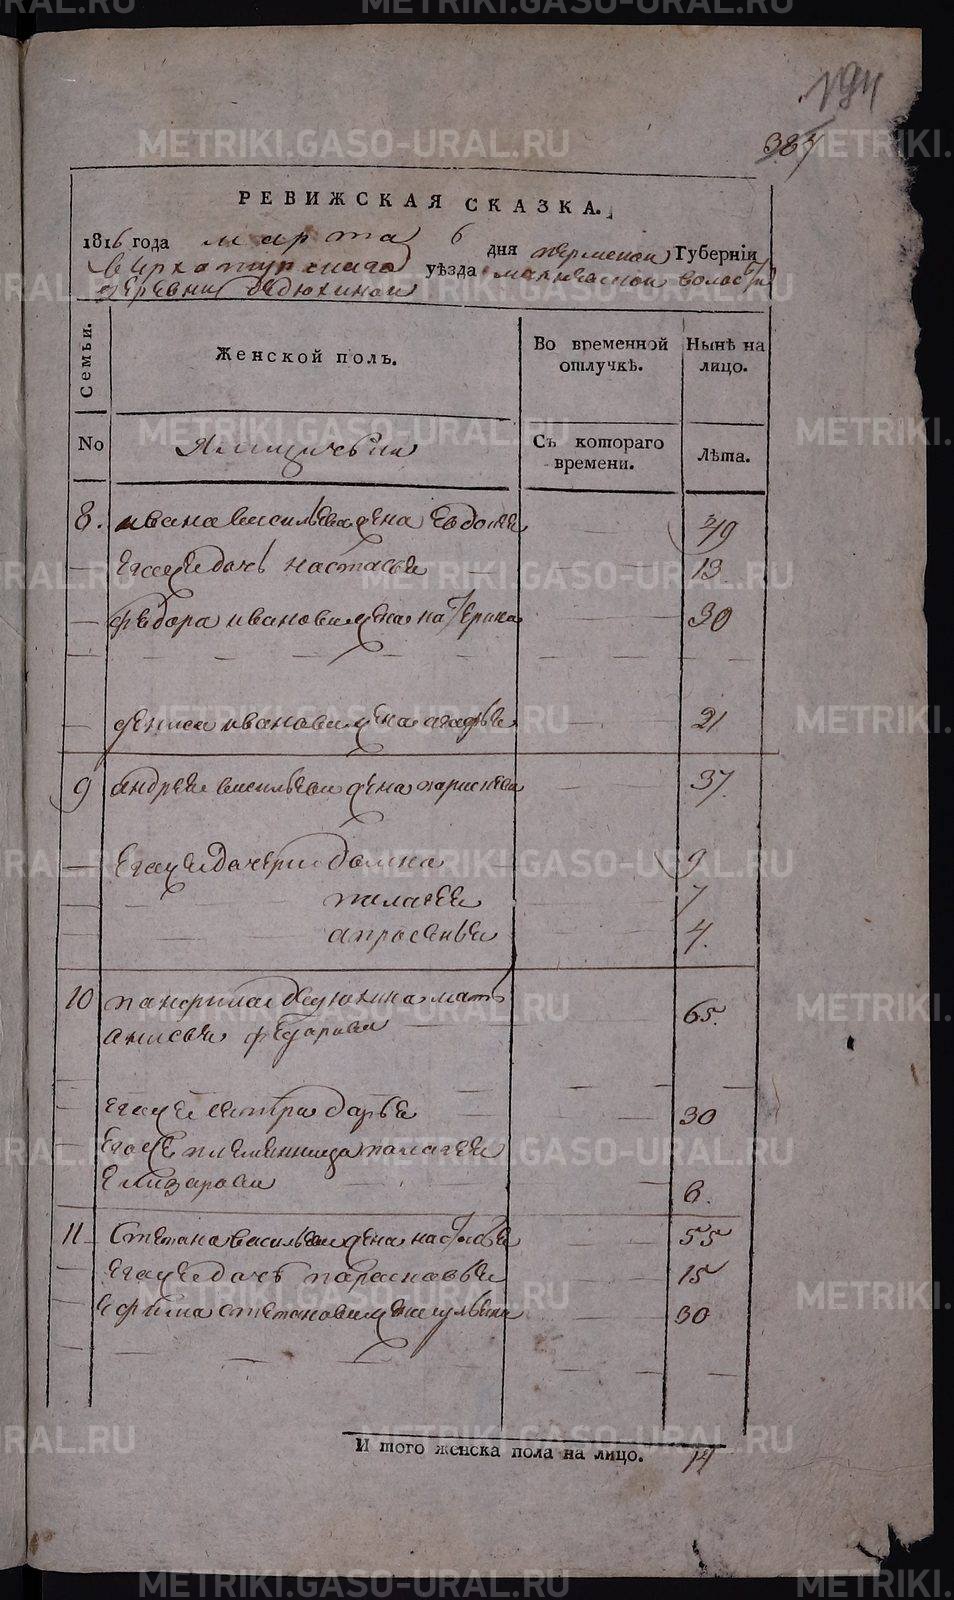 194
384
РЕВИЖСКАЯ СКАЗКА.
1816 года марта 6 дня пермской Губерніи
верхотурскаго уѣзда махневской волости
деревни бедюхиной
Семьи.
Женской полъ.
Во временной отлучкѣ.
Нынѣ на лицо.
No
Съ котораго времени.
Лѣта.
8. ивана васильева жена 49
егоже дочь настасья 13
федора иванова жена 30
дениса иванова жена 21
9 андрея васильева жена 37
егоже дочери домна 9
пелагея 7
апросенья 4.
10 бедюхина мать
анисья федорова 65.
егоже сестра дарья 30
егоже племянница палагея
елизарова 6.
11 степана васильева жена 55
егоже дочь парасковья 15
ефима степанова жена 30
И того женска пола на лицо. 14
METRIKI.GASO-URAL.RU